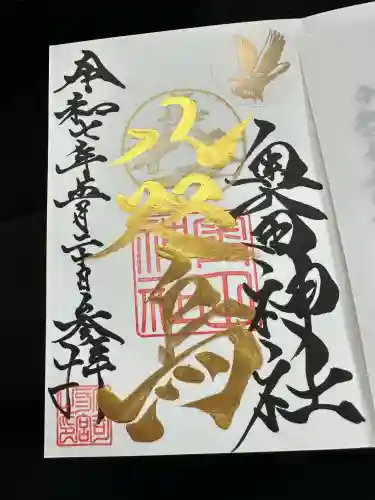 奥田神社
八咫烏
令和七年五月二十日参拝